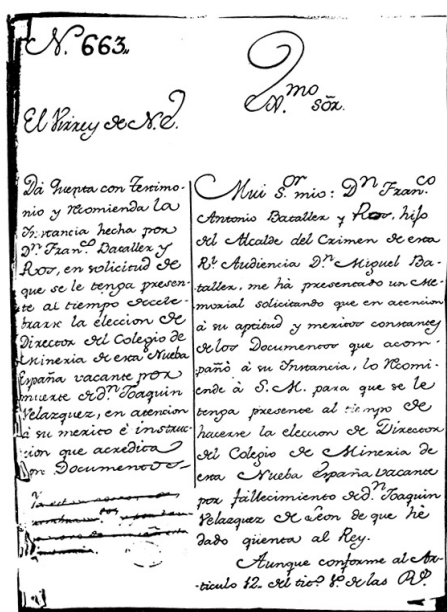 N.º 663.,
Yl.mo Sõr.
El Virrey de N. E.
Dá quenta con Testimo-
nio y recomienda la
Instancia hecha por
Dn. Fran.co Bataller y
Ros, en solicitud de
que se le tenga presen-
te al tiempo de cele-
brarse la eleccion de
Director del Colegio de
Mineria de esta Nueba
España vacante por
muerte de dn. Joaquin
Velazquez, en atencion
á su merito é instruc-
cion que acredita
por Documentos.
Mui S.or mio: Dn. Fran.co
Antonio Bataller y Ros, hijo
del Alcalde del Crimen de esta
Rl. Audiencia Dn. Miguel Ba-
taller, me há presentado un Me-
morial solicitando que en atencion
à su aptitud y meritos constantes
de los Documentos que acom-
pañó à su Instancia, lo recomi-
ende à S. M. para que se le
tenga presente al tiempo de
hacerse la eleccion de Director
del Colegio de Mineria de
esta Nueba España vacante
por fallecimiento de dn. Joaquin
Velazquez de Leon de que hé
dado qüenta al Rey.
Aunque conforme al Ar-
ticulo 12. del tit.º 1.º de las Rs.